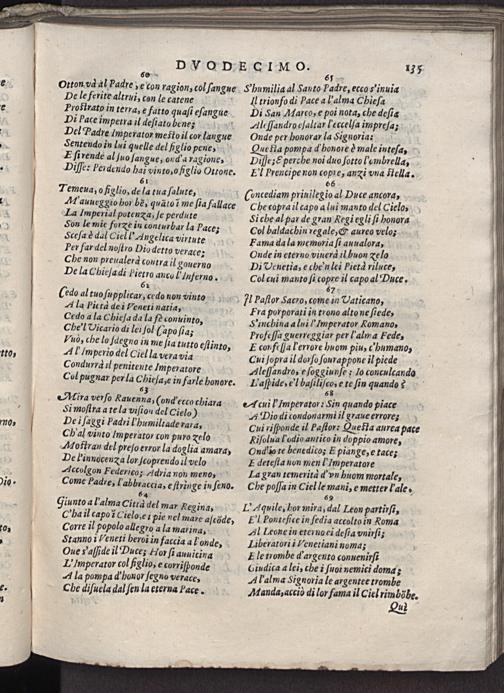 DVODECIMO. 135
60
Otton và al Padre, e con ragion, col sangue
De le ferite altrui, con le catene
Prostrato in terra, e fatto quasi esangue
Di Pace impetra il desiato bene;
Del Padre Imperator mesto il cor langue
Sentendo in lui quelle del figlio pene,
E si rende al suo sangue, ond'a ragione,
Disse: Perdendo hai vinto, o figlio Ottone.
61
Temeua, o figlio, de la tua salute,
M'aueggio hor bè, quāto i me sia fallace
La Imperial potenza, se perdute
Son le mie forze in conturbar la Pace;
Scesa è dal Ciel l'Angelica virtute
Per far del nostro Dio detto verace;
Che non preualerà contra il gouerno
De la Chiesa di Pietro anco l'Inferno.
62
Cedo al tuo supplicar, cedo non vinto
A la Pietà de i Veneti natia,
Cedo a la Chiesa da la fè conuinto,
Che'l Vicario di lei sol Capo sia;
Vuò, che lo sdegno in me sia tutto estinto,
A l'Imperio del Ciel la vera via
Condurrà il penitente Imperatore
Col pugnar per la Chiesa, e in farle honore.
63
Mira verso Rauenna, (ond'ecco chiara
Si mostra a te la vision del Cielo)
De i saggi Padri l'humiltade rara,
Ch'al vinto Imperator con puro zelo
Mostran del preso error la doglia amara,
De l'innocenza lor scoprendo il velo
Accolgon Federico; Adria non meno,
Come Padre, l'abbraccia, e stringe in seno.
64
Giunto a l'alma Città del mar Regina,
C'ha il capo ĩ Cielo, e i pie nel mare ascōde,
Corre il popolo allegro a la marina,
Stanno i Veneti heroi in faccia a l'onde,
Oue s'asside il Duce; Hor si auuicina
L'Imperator col figlio, e corrisponde
A la pompa d'honor segno verace,
Che disuela dal sen la eterna Pace.
65
S'humilia al Santo Padre, ecco s'inuia
Il trionfo di Pace a l'alma Chiesa
Di San Marco, e poi nota, che desia
Alessandro esaltar l'eccelsa impresa;
Onde per honorar la Signoria:
Questa pompa d'honore è male intesa,
Disse; E perche noi duo sotto l'ombrella,
E'l Prencipe non copre, anzi vna stella.
66
Concediam priuilegio al Duce ancora,
Che copra il capo a lui manto del Cielo,
Si che al par de gran Regi egli si honora
Col baldachin regale, & aureo velo;
Fama da la memoria si auualora,
Onde in eterno viuerà il buon zelo
Di Venetia, e che'n lei Pietà riluce,
Col cui manto si copre il capo al Duce.
67
Il Pastor Sacro, come in Vaticano,
Fra porporati in trono alto ne siede,
S'inchina a lui l'Imperator Romano,
Professa guerreggiar per l'alma Fede,
E confessa l'errore huom piu, c'humano,
Cui sopra il dorso sourappone il piede
Alessandro, e soggiunse; Io conculcando
L'aspide, e'l basilisco, e te sin quando?
68
A cui l'Imperator: Sin quando piace
A Dio di condonarmi il graue errore;
Cui risponde il Pastor: Questa aurea pace
Risolua l'odio antico in doppio amore,
Ond'io te benedico; E piange, e tace;
E detesta non men l'Imperatore
La gran temerità d'vn huom mortale,
Che possa in Ciel le mani, e metter l'ale.
69
L'Aquile, hor mira, dal Leon partirsi,
E'l Pontefice in sedia accolto in Roma
Al Leone in eterno ei desia vnirsi;
Liberatori i Venetiani noma;
E le trombe d'argento conuenirsi
Giudica a lei, che i suoi nemici doma;
A l'alma Signoria le argentee trombe
Manda, acciò di lor fama il Ciel rimbōbe.
Quì